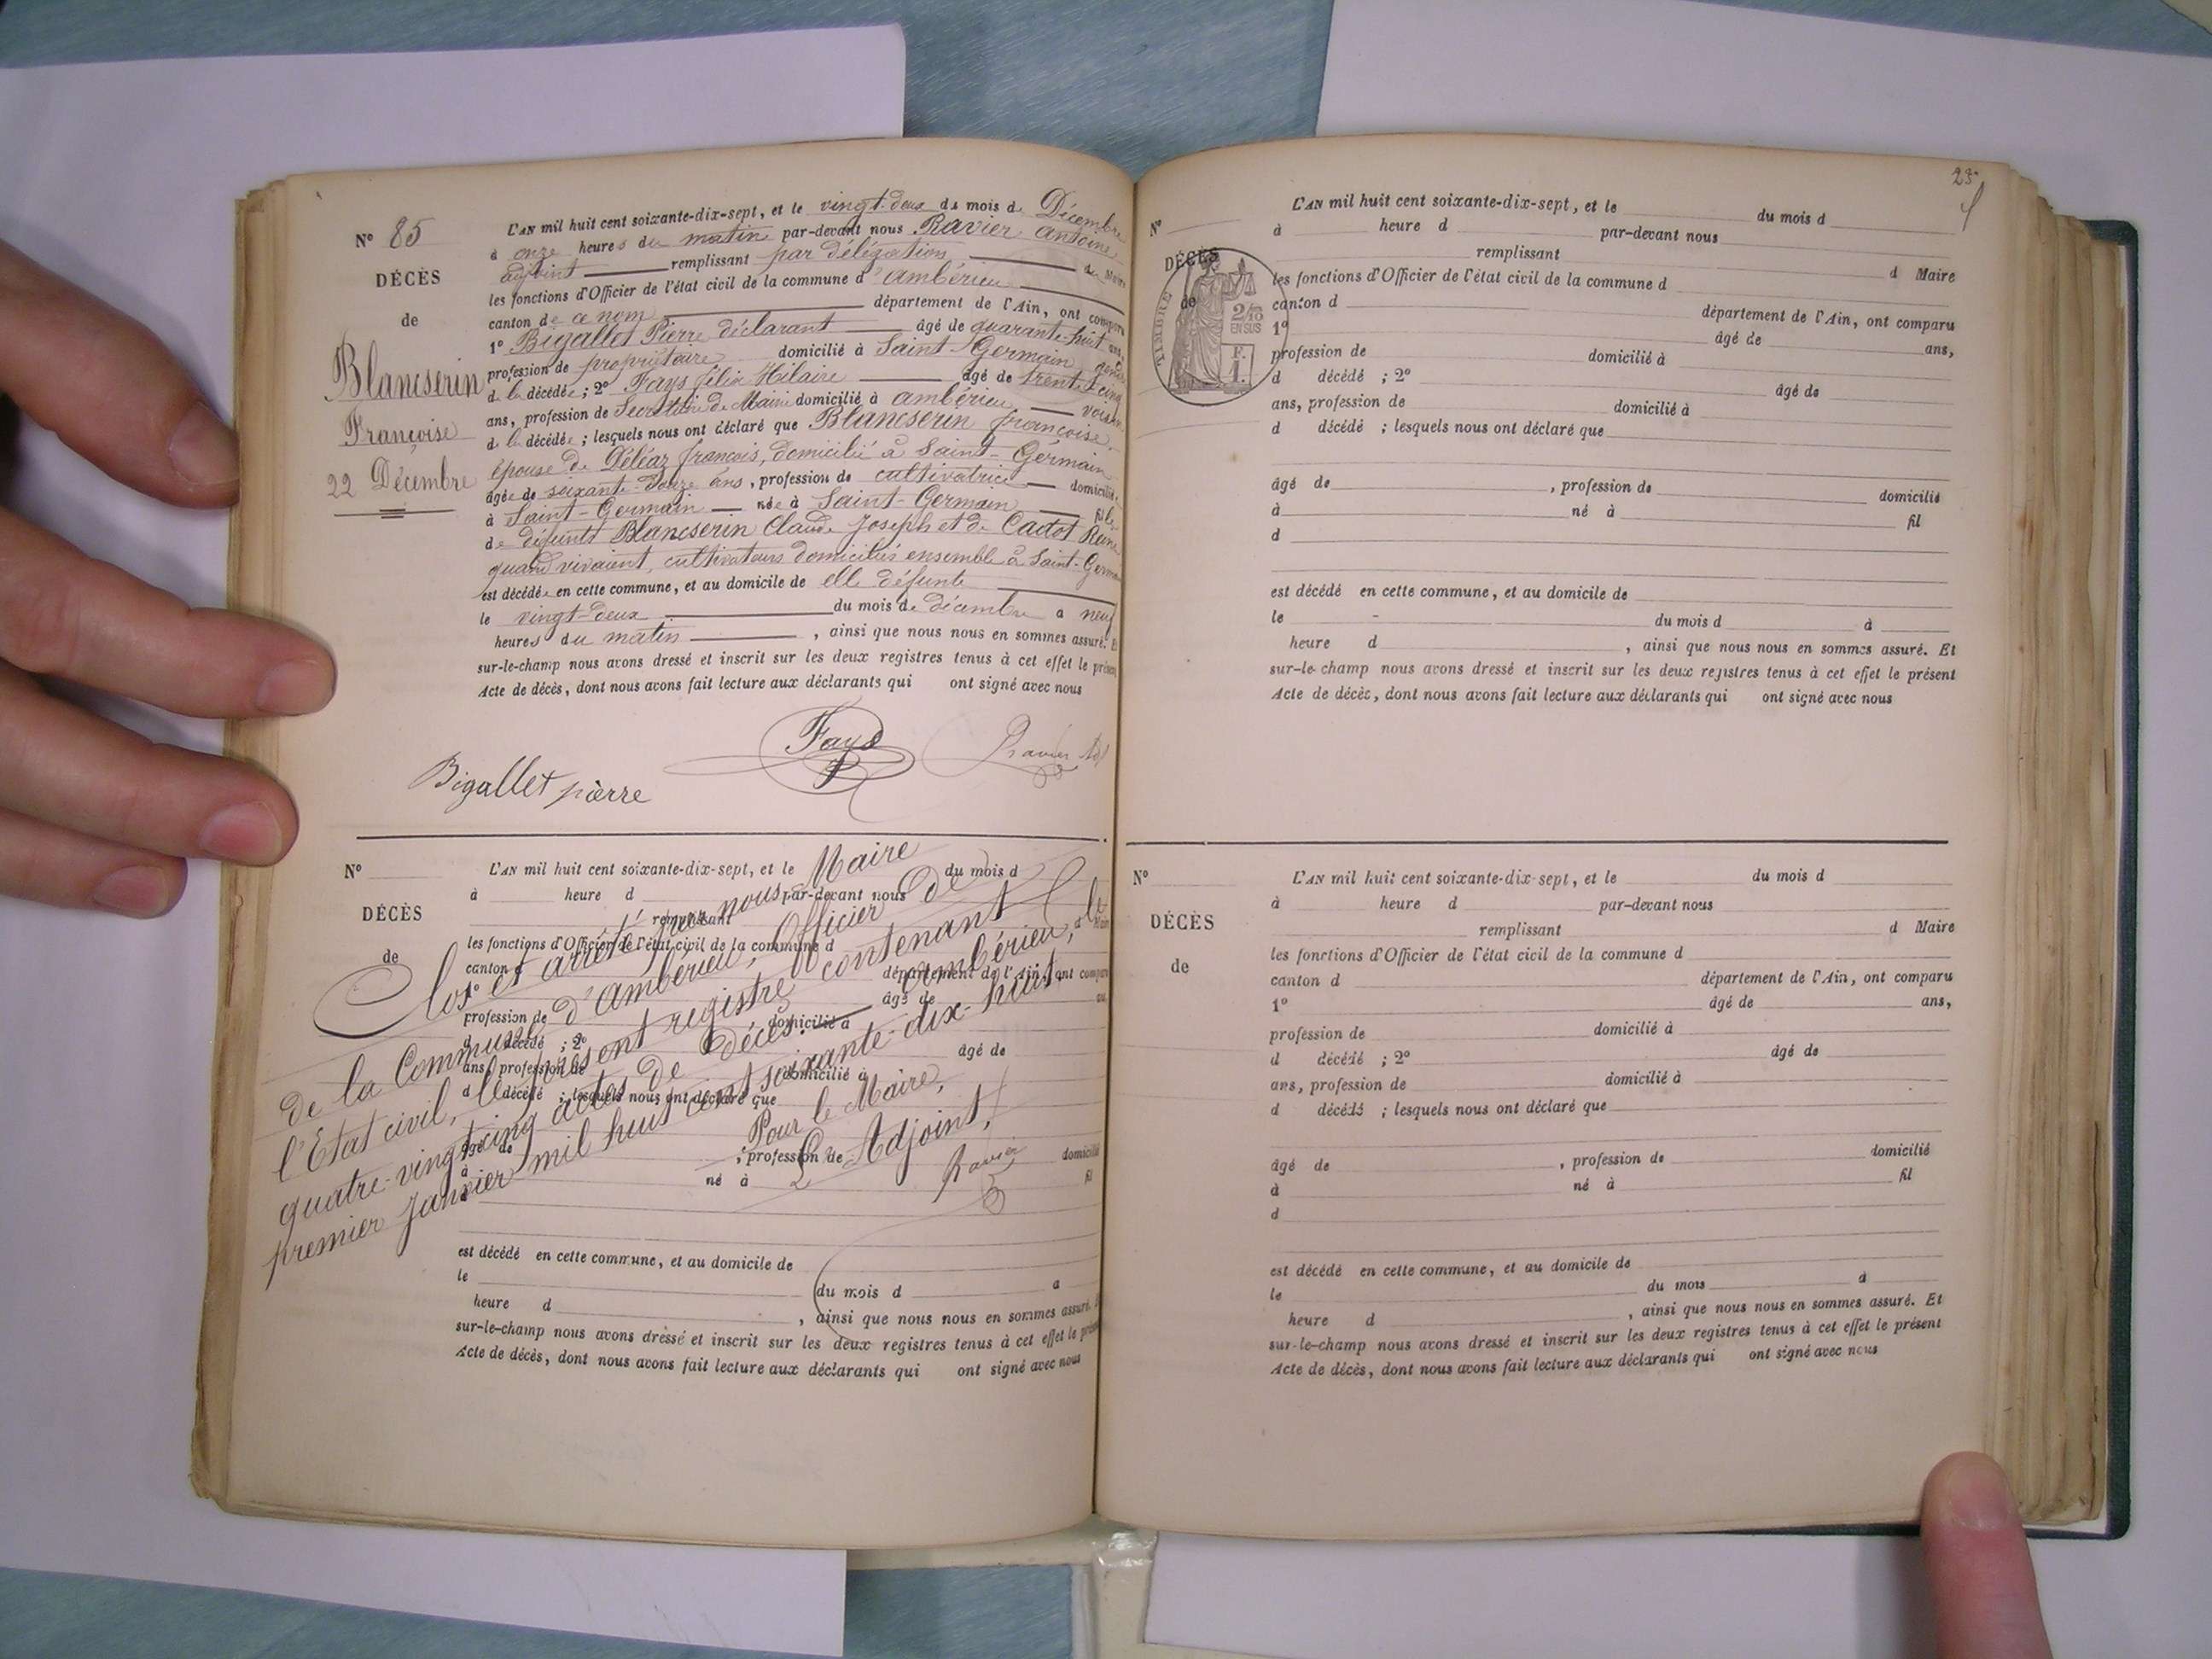 N° 85
DÉCÈS
de
Blancserin
Françoise
22 Décembre
L'AN mil huit cent soixante-dix-sept, et le vingt-deux du mois d Décembre
à onze heures du matin par-devant nous Ravier Antoine
adjoint remplissant par délégation du Maire
les fonctions d'Officier de l'état civil de la commune d'ambérieu
canton de ce nom département de l'Ain, ont comparu
1° Bigallet Pierre déclarant âgé de quarante-huit ans,
profession de propriétaire domicilié à Saint-Germain
d la décédée ; 2° Fays félix Hilaire âgé de trente cinq
ans, profession de Secrétaire de Mairie domicilié à ambérieu voisin
d la décédée ; lesquels nous ont déclaré que Blancserin françoise,
épouse de Déléaz françois, domicilié à Saint-Germain
âgée de soixante-douze ans, profession de cultivatrice domiciliée
à Saint-Germain née à Saint-Germain fille
de défunts Blancserin Claude Joseph et de Cadot Reine
quand vivaient, cultivateurs domiciliés ensemble à Saint-Germain
est décédée en cette commune, et au domicile de elle défunte
le vingt-deux du mois de décembre à neuf
heures du matin, ainsi que nous nous en sommes assuré. Et
sur-le-champ nous avons dressé et inscrit sur les deux registres tenus à cet effet le présent
Acte de décès, dont nous avons fait lecture aux déclarants qui ont signé avec nous
Bigallet pièrre
Fays
Ravier
N°
DÉCÈS
de
L'AN mil huit cent soixante-dix-sept, et le du mois d
à heure d par-devant nous
remplissant d Maire
les fonctions d'Officier de l'état civil de la commune d
canton d département de l'Ain, ont comparu
1° âgé de ans,
profession de domicilié à
d décédé ; 2° âgé de
ans, profession de domicilié à
d décédé ; lesquels nous ont déclaré que
âgé de , profession de domicilié
à né à fil
d
est décédé en cette commune, et au domicile de
le du mois d à
heure d , ainsi que nous nous en sommes assuré. Et
sur-le-champ nous avons dressé et inscrit sur les deux registres tenus à cet effet le présent
Acte de décès, dont nous avons fait lecture aux déclarants qui ont signé avec nous
Clos et arrêté par nous Maire
de la Commune d'Ambérieu, Officier de
l'Etat civil, le présent registre contenant
quatre-vingt cinq actes de Décès. ambérieu, le
premier Janvier mil huit cent soixante-dix-huit.
Pour le Maire,
L'Adjoint,
Ravier
23
N°
DÉCÈS
de
TIMBRE
2/10
EN SUS
F.
1.
L'AN mil huit cent soixante-dix-sept, et le du mois d
à heure d par-devant nous
remplissant d Maire
les fonctions d'Officier de l'état civil de la commune d
canton d département de l'Ain, ont comparu
1° âgé de ans,
profession de domicilié à
d décédé ; 2° âgé de
ans, profession de domicilié à
d décédé ; lesquels nous ont déclaré que
âgé de , profession de domicilié
à né à fil
d
est décédé en cette commune, et au domicile de
le du mois d à
heure d , ainsi que nous nous en sommes assuré. Et
sur-le-champ nous avons dressé et inscrit sur les deux registres tenus à cet effet le présent
Acte de décès, dont nous avons fait lecture aux déclarants qui ont signé avec nous
N°
DÉCÈS
de
L'AN mil huit cent soixante-dix-sept, et le du mois d
à heure d par-devant nous
remplissant d Maire
les fonctions d'Officier de l'état civil de la commune d
canton d département de l'Ain, ont comparu
1° âgé de ans,
profession de domicilié à
d décédé ; 2° âgé de
ans, profession de domicilié à
d décédé ; lesquels nous ont déclaré que
âgé de , profession de domicilié
à né à fil
d
est décédé en cette commune, et au domicile de
le du mois à
heure d , ainsi que nous nous en sommes assuré. Et
sur-le-champ nous avons dressé et inscrit sur les deux registres tenus à cet effet le présent
Acte de décès, dont nous avons fait lecture aux déclarants qui ont signé avec nous